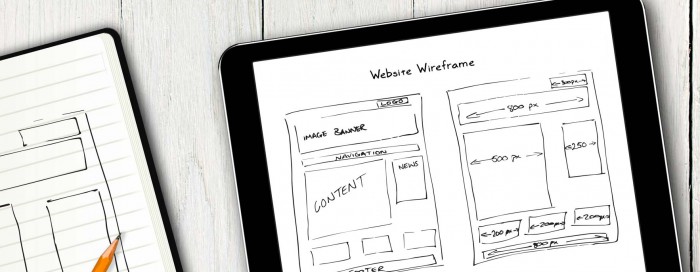 Website Wireframe
LOGO
IMAGE BANNER
NAVIGATION
CONTENT
NEWS
OOTER
800 px
500 px
250
200 px
200 px
200 px